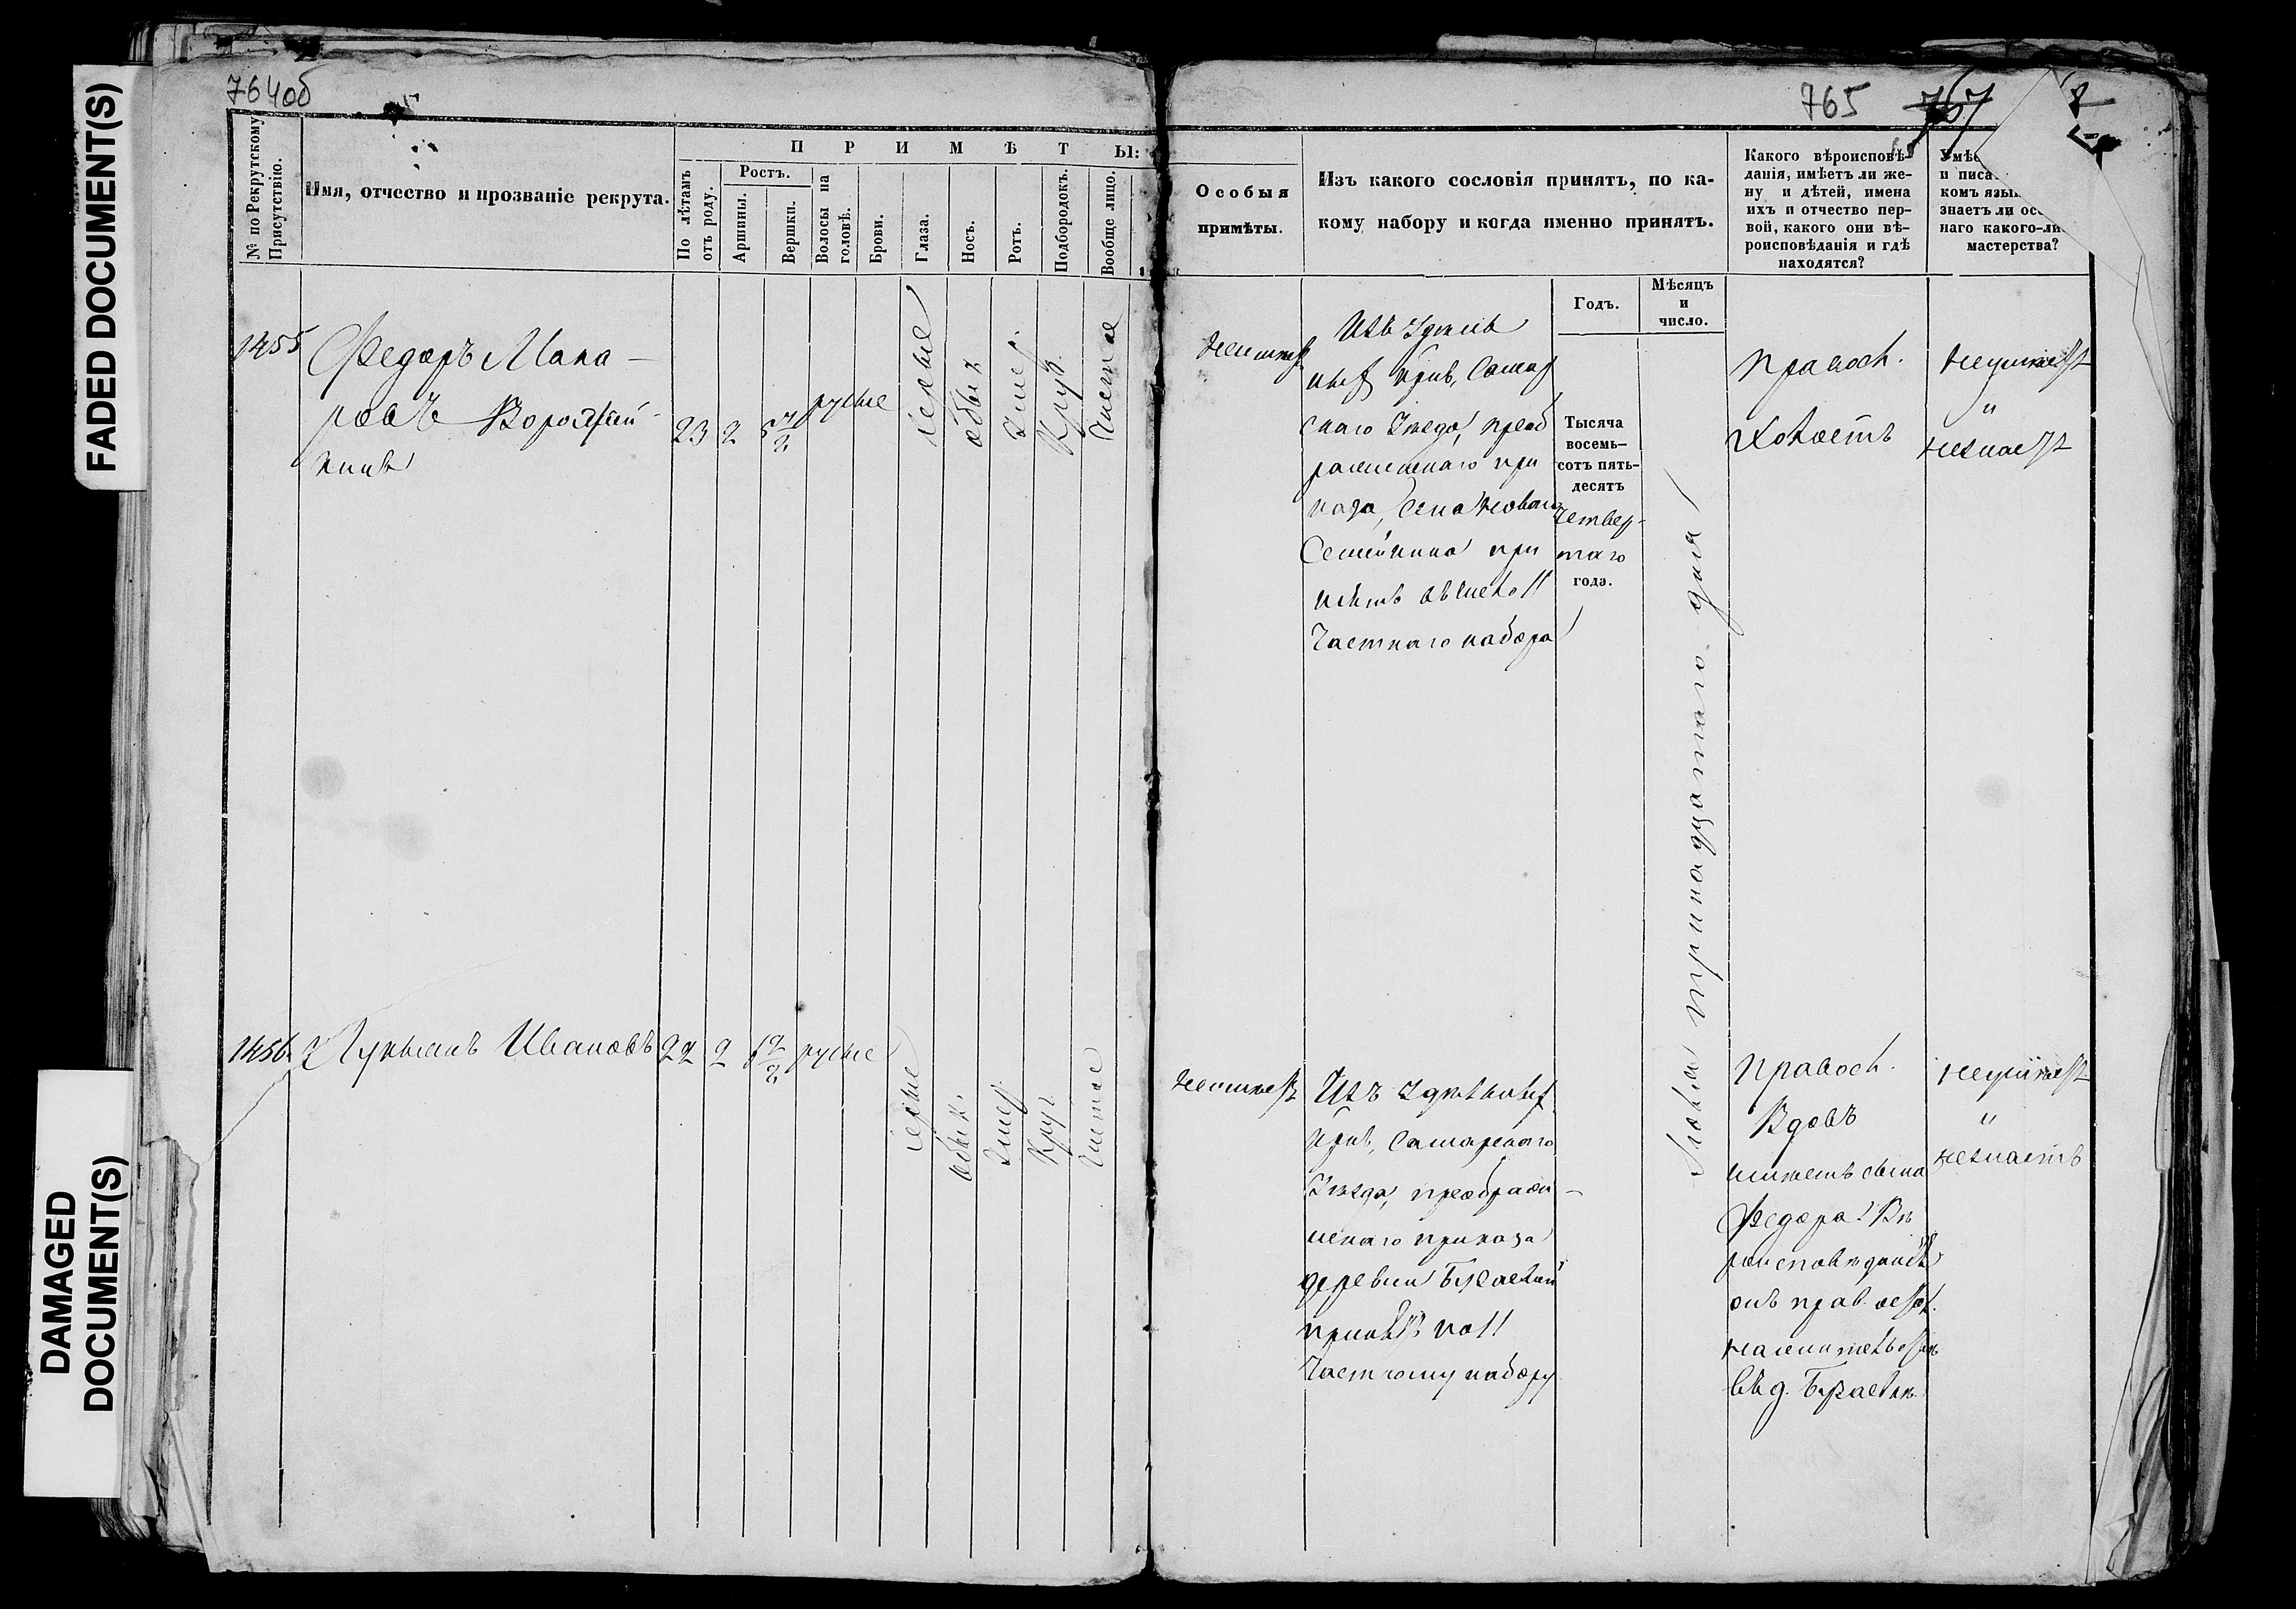 FADED DOCUMENT(S)
DAMAGED
DOCUMENT(S)
764об
765 767
№ по Рекрутскому
Присутствію.
Имя, отчество и прозваніе рекрута.
ПРИМѢТЫ:
По лѣтамъ
отъ роду.
Ростъ.
Аршины.
Вершки.
Волосы на
головѣ.
Брови.
Глаза.
Носъ.
Ротъ.
Подбородокъ.
Вообще лицо.
Особыя
примѣты.
Изъ какого сословія принятъ, по ка-
кому набору и когда именно принятъ.
Годъ.
Мѣсяцъ
и
число.
Какого вѣроисповѣ-
данія, имѣетъ ли же-
ну и дѣтей, имена
ихъ и отчество пер-
вой, какого они вѣ-
роисповѣданія и гдѣ
находятся?
Умѣе
и писа
комъ язы
знаетъ ли ос
наго какого-ли
мастерства?
1455
Федоръ Мака-
ровъ
кинъ
23
2
русые
серые
обык
умер.
круг.
чистое
неимеет
Изъ удель
ных крес. Самар
скаго Уезда, преоб
раженскаго при
каза, села Новаго
Семейкина при
нятъ
частнаго набора
Тысяча
восемь-
сотъ пять-
десятъ
четвер-
таго
года.
тринадцатаго дня
Правосл.
Холостъ
неумеет
"
незнает
1456
Лукьянъ Ивановъ
22
2
русые
серые
обык.
умер.
круг.
чистое
неимеетъ
Изъ удельных
крес. Самарскаго
Уезда, преображ-
енскаго приказа
деревни
принятъ по 11
частному набору
Правосл.
Вдовъ
имеетъ сына
Федора! Ве
роисповеданія
онъ прав. осет.
на жительстве
въ д.
неумеет
"
незнаетъ